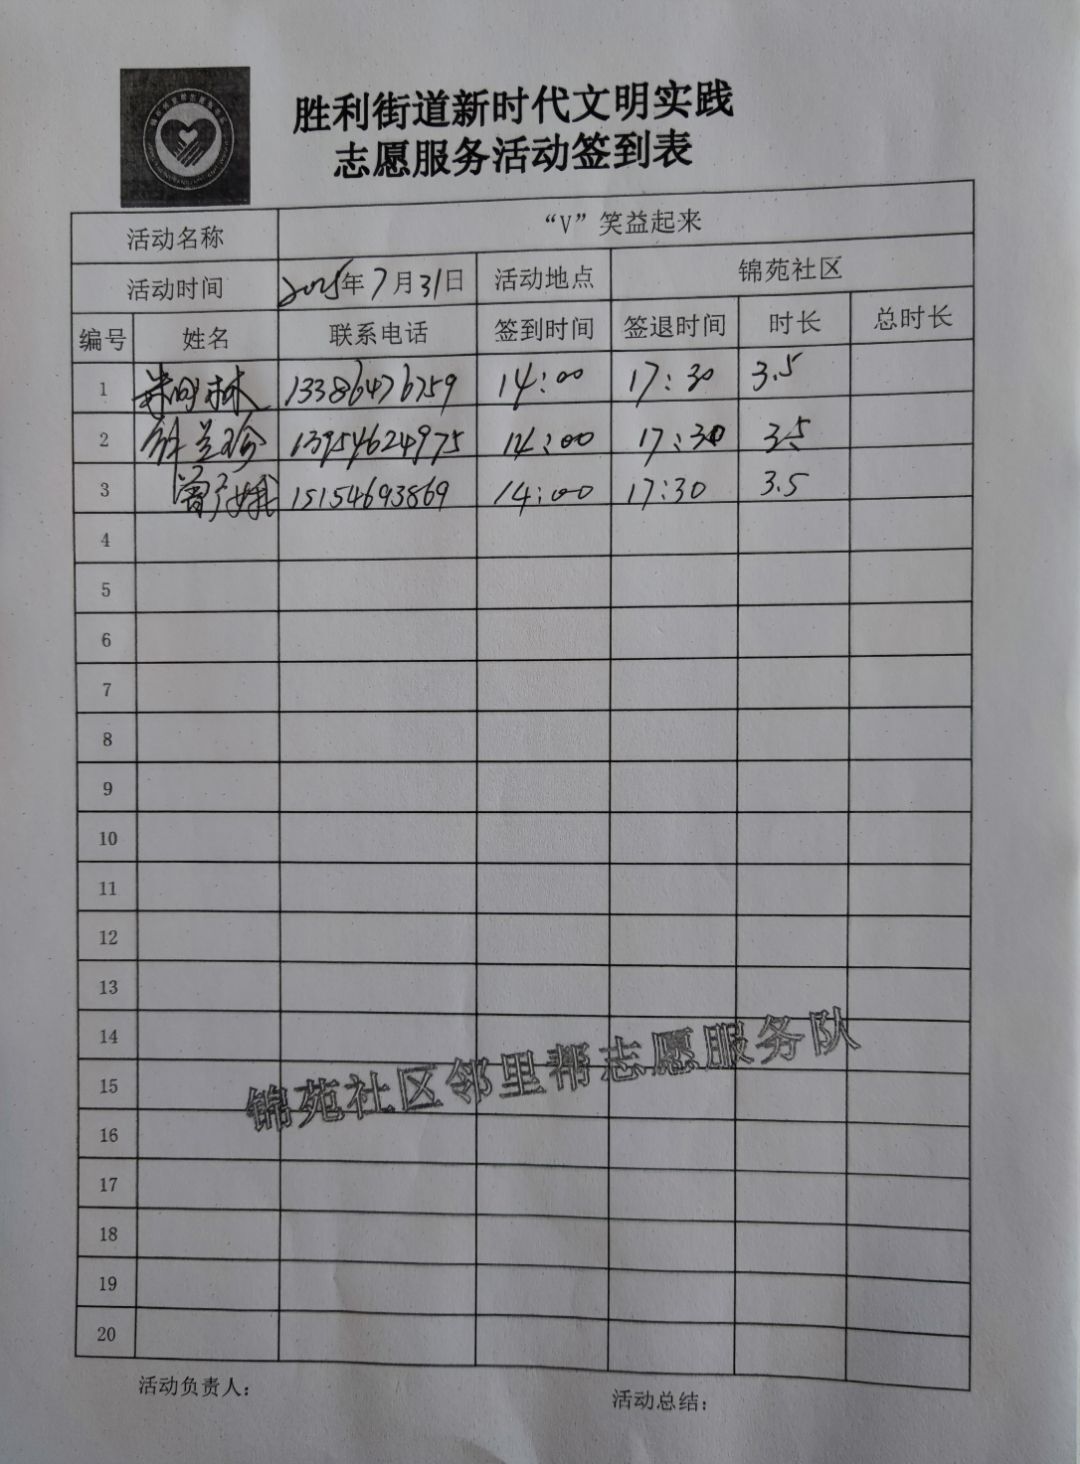 胜利街道新时代文明实践
志愿服务活动签到表
活动名称 “V”笑益起来
活动时间 2025年7月31日 活动地点 锦苑社区
编号 姓名 联系电话 签到时间 签退时间 时长 总时长
1 林 13386476759 14:00 17:30 3.5
2 13954624975 14:00 17:30 3.5
3 15154693869 14:00 17:30 3.5
4
5
6
7
8
9
10
11
12
13
14
15
16
17
18
19
20
锦苑社区邻里帮志愿服务队
活动负责人: 活动总结: